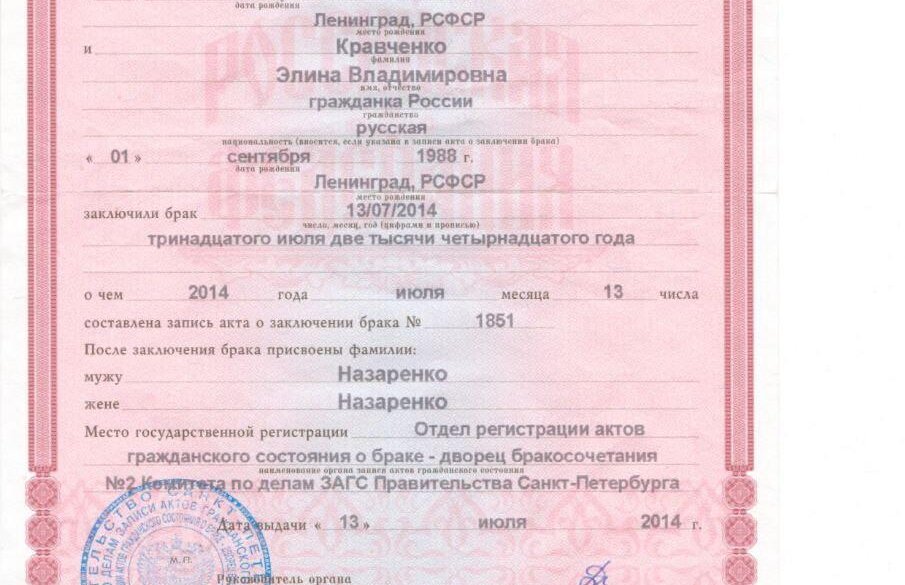 дата рождения
Ленинград, РСФСР
место рождения
и Кравченко
фамилия
Элина Владимировна
имя, отчество
гражданка России
гражданство
русская
национальность (вносится, если указана в записи акта о заключении брака)
« 01 » сентября 1988 г.
дата рождения
Ленинград, РСФСР
место рождения
заключили брак 13/07/2014
число, месяц, год (цифрами и прописью)
тринадцатого июля две тысячи четырнадцатого года
о чем 2014 года июля месяца 13 числа
составлена запись акта о заключении брака № 1851
После заключения брака присвоены фамилии:
мужу Назаренко
жене Назаренко
Место государственной регистрации Отдел регистрации актов
гражданского состояния о браке - дворец бракосочетания
наименование органа записи актов гражданского состояния
№2 Комитета по делам ЗАГС Правительства Санкт-Петербурга
Дата выдачи « 13 » июля 2014 г.
М.П.
Руководитель органа